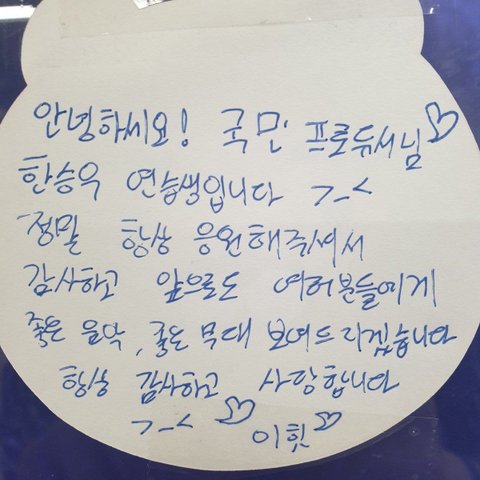 안녕하세요! 국민 프로듀서님♡
한승우 연습생입니다 >_<
정말 항상 응원해주셔서
감사하고 앞으로도 여러분들에게
좋은 음악, 좋은 무대 보여드리겠습니다
항상 감사하고 사랑합니다
>_< ♡ 이힛♡